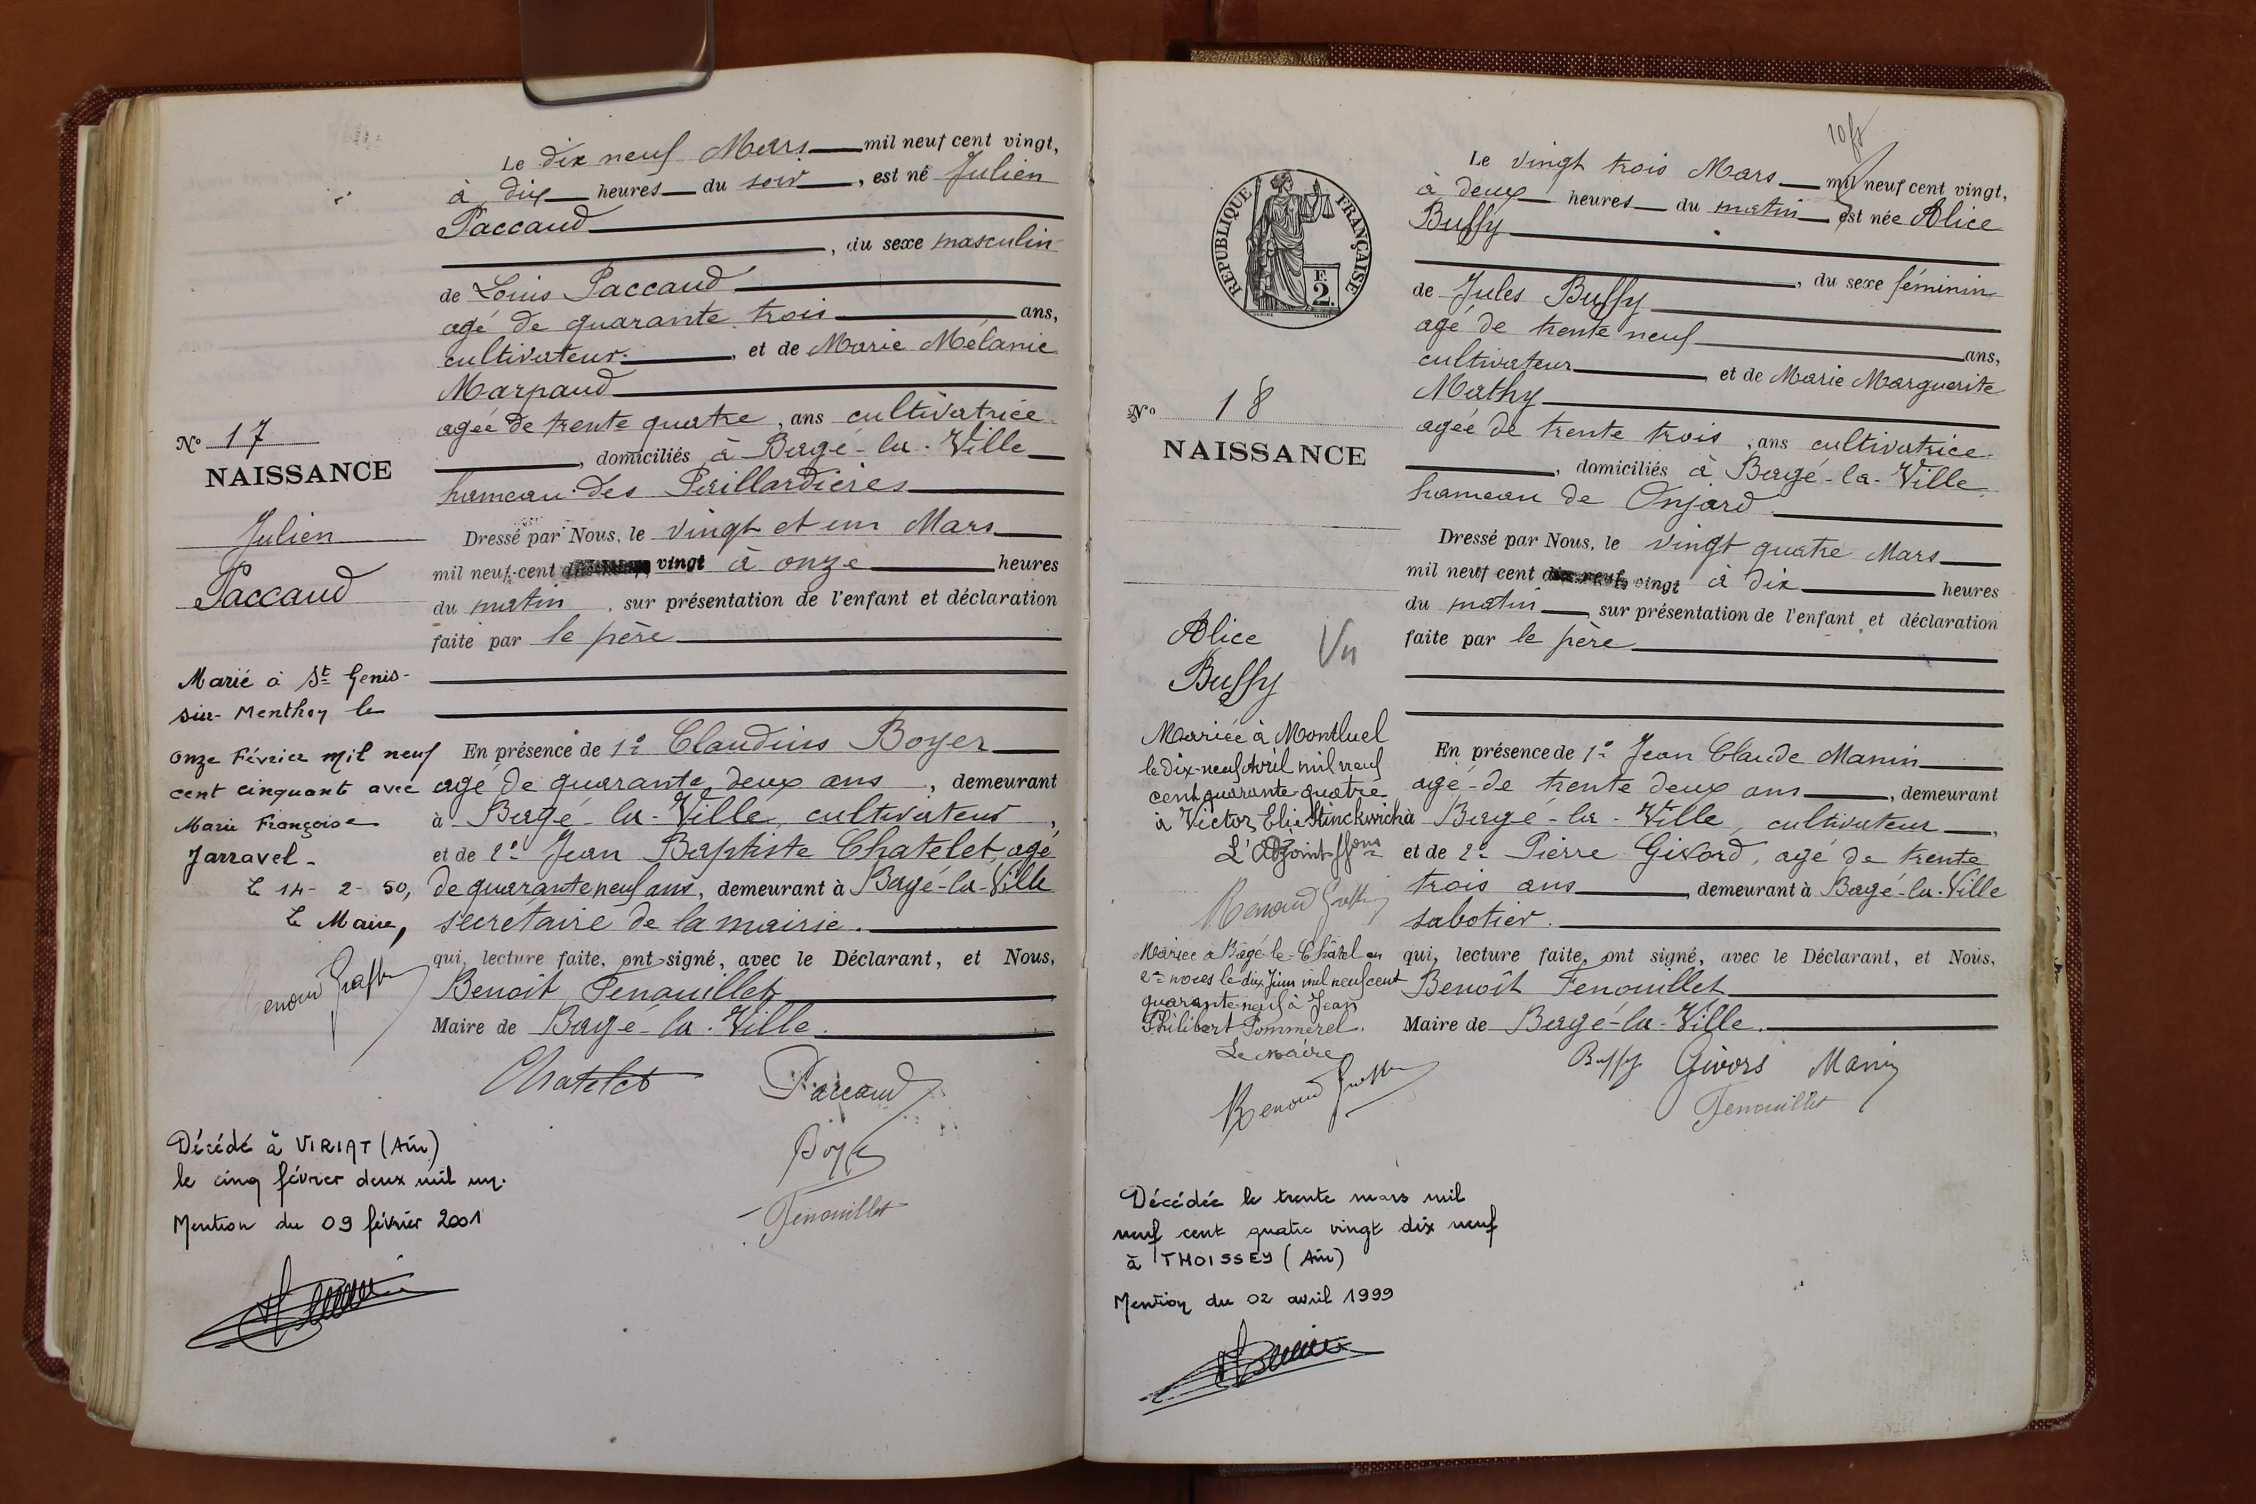 Le dix neuf Mars mil neuf cent vingt,
à dix heures du soir, est né Julien
Paccaud
, du sexe masculin
de Louis Paccaud
agé de quarante trois ans,
cultivateur, et de Marie Mélanie
Marpaud
agée de trente quatre, ans cultivatrice
, domiciliés à Bagé-la-Ville
hameau des Paillardières
Dressé par Nous, le vingt et un Mars
mil neuf cent vingt à onze heures
du matin, sur présentation de l'enfant et déclaration
faite par le père
En présence de 1º Claudius Boyer
agé de quarante deux ans, demeurant
à Bagé-la-Ville, cultivateur,
et de 2º Jean Baptiste Chatelet, agé
de quarante neuf ans, demeurant à Bagé-la-Ville
secrétaire de la mairie.
qui, lecture faite, ont signé, avec le Déclarant, et Nous,
Benoît Fenouillet
Maire de Bagé-la-Ville.
Chatelet Paccaud
Boyer
Fenouillet
Nº 17
NAISSANCE
Julien
Paccaud
Marié à St Genis-
sur-Menthon le
onze Février mil neuf
cent cinquante avec
Marie Françoise
Jarravel-
Le 14-2-50,
Le Maire,
Décédé à VIRIAT (Ain)
le cinq février deux mil un.
Mention du 09 février 2001
10 fs
RÉPUBLIQUE FRANÇAISE
F.
2.
Le vingt trois Mars mil neuf cent vingt,
à deux heures du matin est née Alice
Buffy
, du sexe féminin
de Jules Buffy
agé de trente neuf ans,
cultivateur, et de Marie Marguerite
Mathy
agée de trente trois, ans cultivatrice
, domiciliés à Bagé-la-Ville
hameau de Onjard
Dressé par Nous, le vingt quatre Mars
mil neuf cent dix-neuf vingt à dix heures
du matin, sur présentation de l'enfant et déclaration
faite par le père
En présence de 1º Jean Claude Manin
agé de trente deux ans, demeurant
à Bagé-la-Ville, cultivateur,
et de 2º Pierre Givord, agé de trente
trois ans, demeurant à Bagé-la-Ville
sabotier.
qui, lecture faite, ont signé, avec le Déclarant, et Nous,
Benoît Fenouillet
Maire de Bagé-la-Ville.
Buffy Givors Manin
Fenouillet
Nº 18
NAISSANCE
Alice
Buffy
Vu
Mariée à Montluel
le dix-neuf Avril mil neuf
cent quarante-quatre
à Victor, Elie Stinckwich
L'Adjoint ffons
Mariée à Bâgé-le-Châtel en
2es noces le dix Juin mil neuf cent
quarante-neuf à Jean
Philibert Pommerel.
Le Maire
Décédée le trente mars mil
neuf cent quatre vingt dix neuf
à THOISSEY (Ain)
Mention du 02 avril 1999